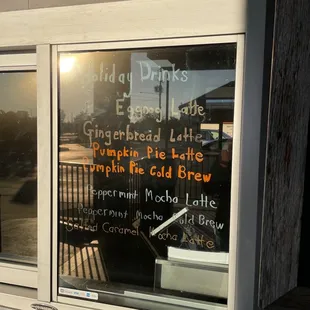 Holiday Drinks
Eggnog Latte
Gingerbread Latte
Pumpkin Pie Latte
Pumpkin Pie Cold Brew
Peppermint Mocha Latte
Peppermint Mocha Cold Brew
Salted Caramel Mocha Latte